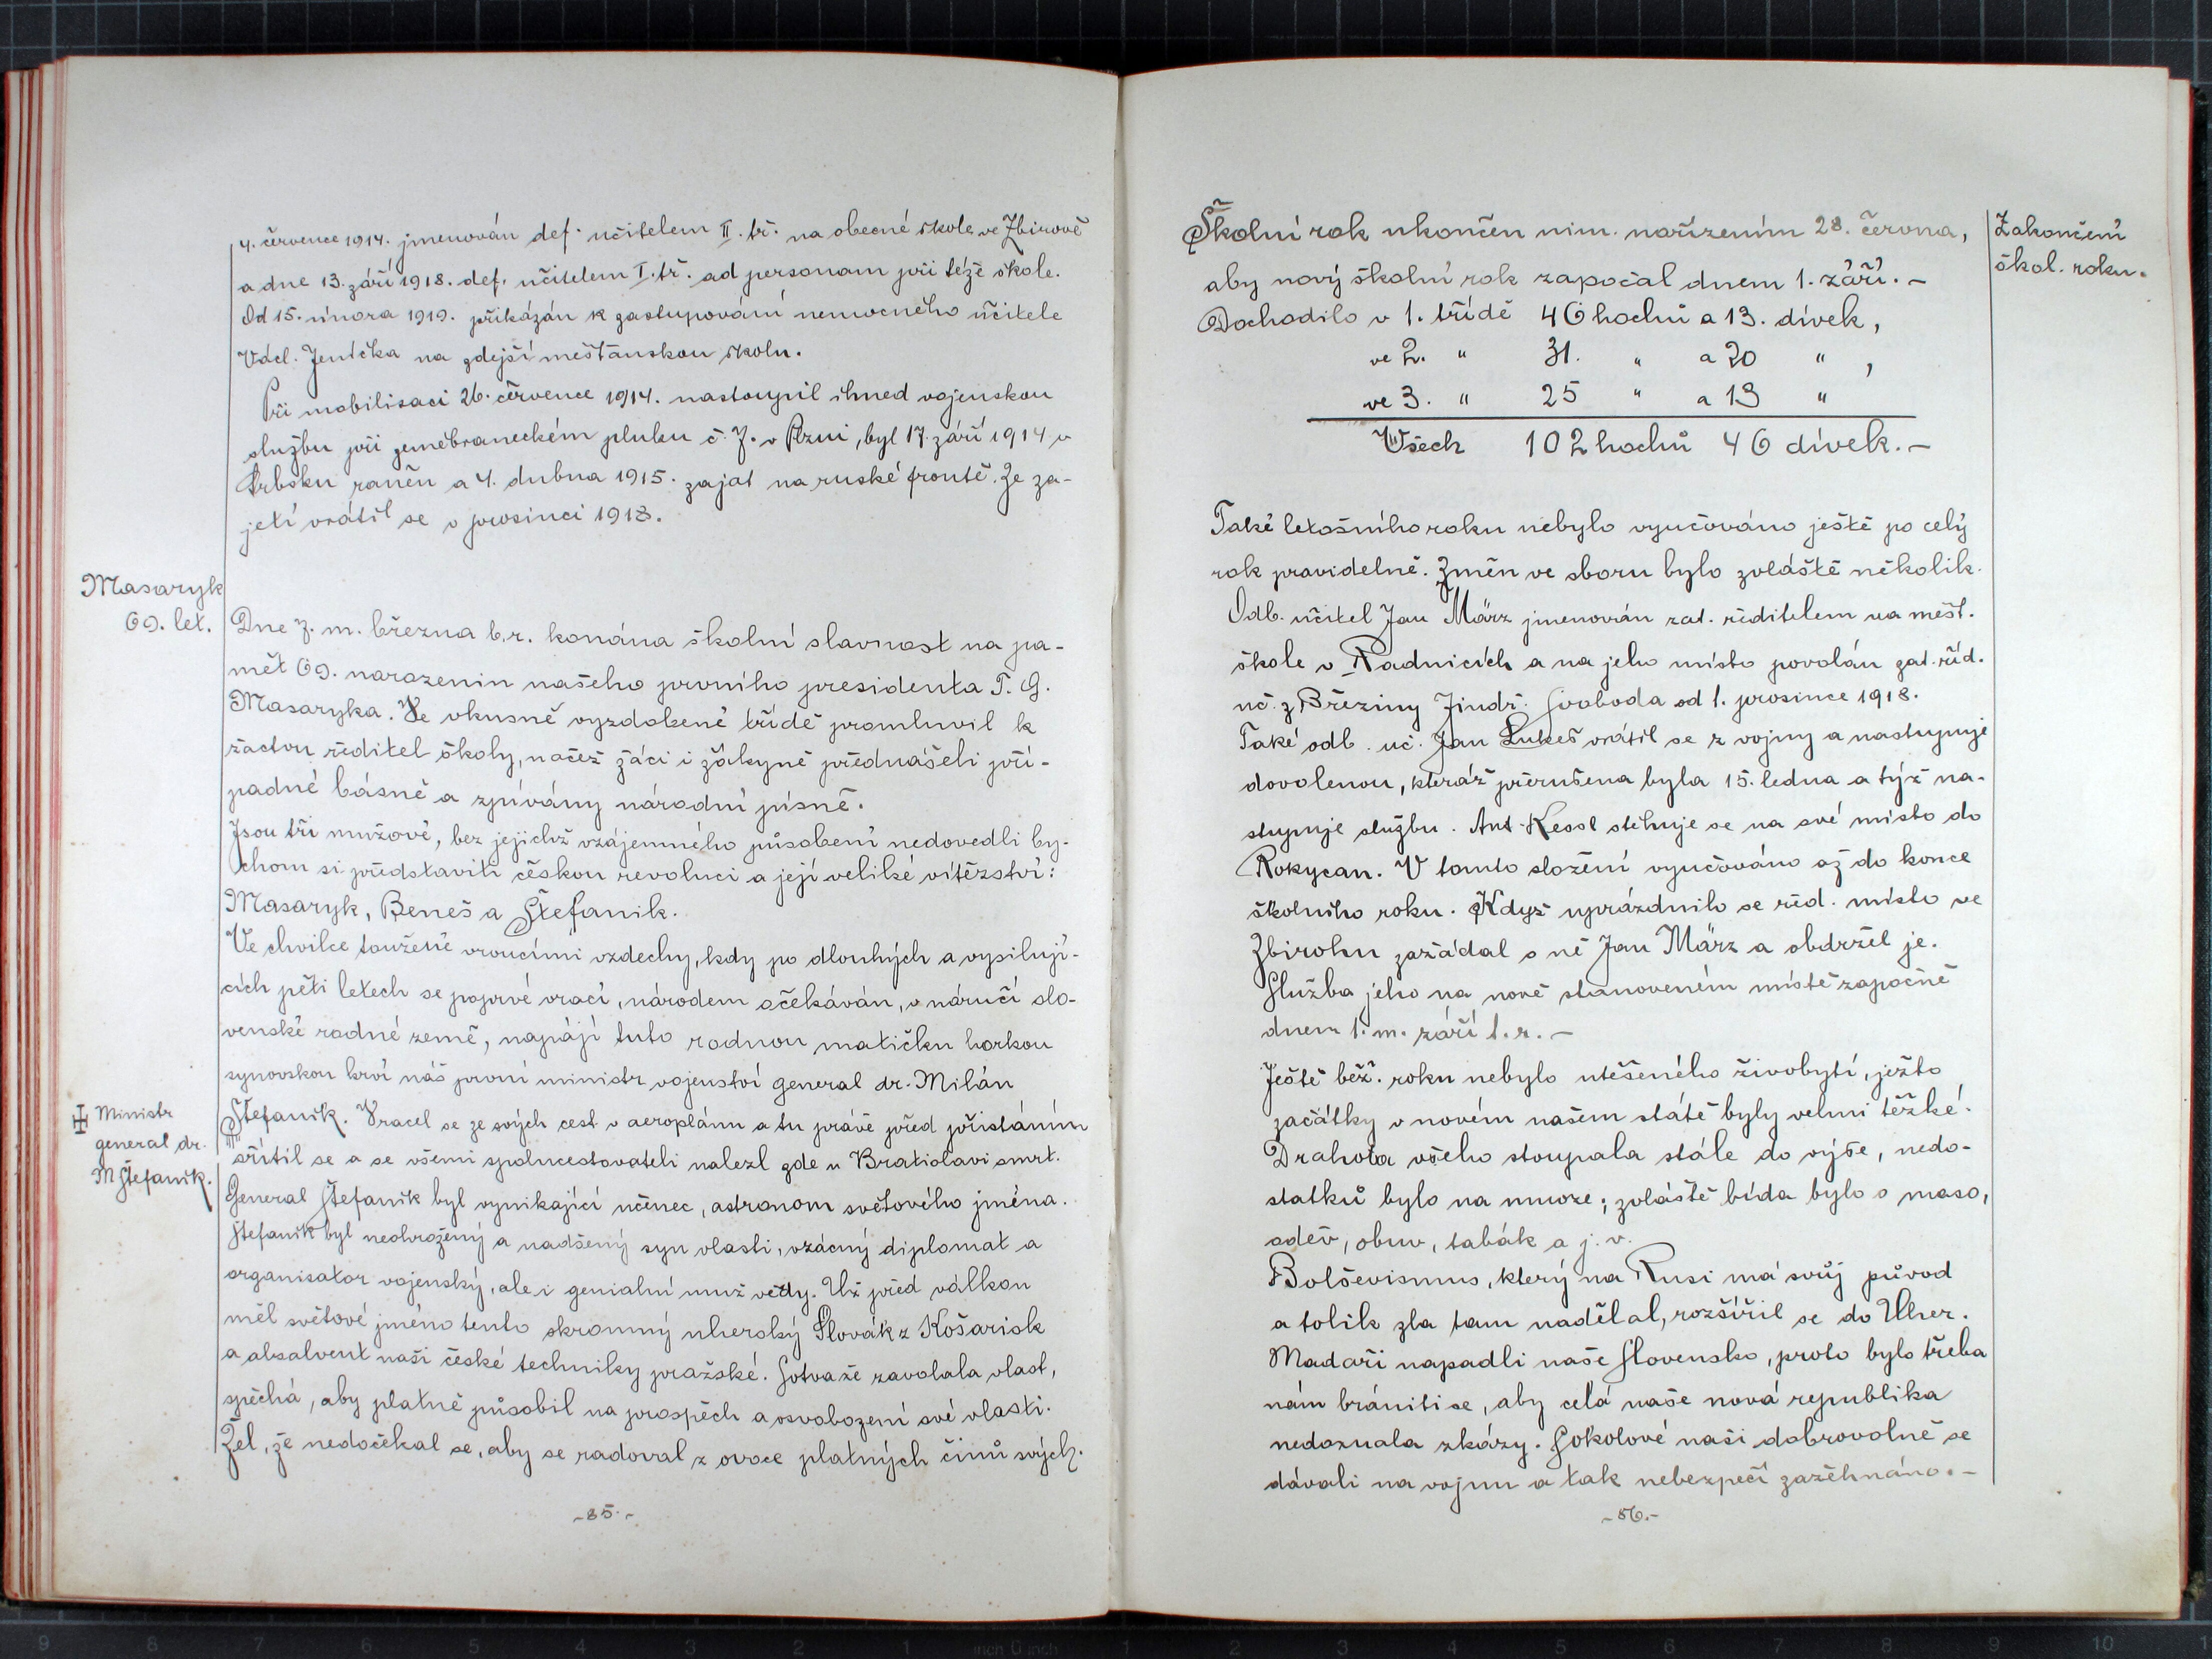 4. července 1914. jmenován def. učitelem II. tř. na obecné škole ve Zbirově
a dne 13. září 1918. def. učitelem I. tř. ad personam při téže škole.
Od 15. února 1919. přikázán k zastupování nemocného učitele
Václ. Jeníčka na zdejší měšťanskou školu.
Při mobilisaci 26. července 1914. nastoupil ihned vojenskou
službu při zeměbraneckém pluku č. 7. v Plzni, byl 17. září 1914 v
Srbsku raněn a 4. dubna 1915. zajat na ruské frontě. Ze za-
jetí vrátil se v prosinci 1918.
Masaryk
69. let.
Dne 7. m. března b.r. konána školní slavnost na pa-
mět 69. narozenin našeho prvního presidenta T. G.
Masaryka. Ve vkusně vyzdobené třídě promluvil k
žactvu ředitel školy, načež žáci i žákyně přednášeli pří-
padné básně a zpívány národní písně.
Jsou tři mužové, bez jejichž vzájemného působení nedovedli by-
chom si představiti českou revoluci a její veliké vítězství:
Masaryk, Beneš a Štefanik.
Ve chvilce toužené vroucími vzdechy, kdy po dlouhých a vysilují-
cích pěti letech se poprvé vrací, národem očekáván, v náručí slo-
venské rodné země, napájí tuto rodnou matičku horkou
synovskou krví náš první ministr vojenství general dr. Milán
Štefanik. Vracel se ze svých cest v aeroplánu a tu právě před přistáním
‡ Ministr
general dr.
M Štefanik.
sřítil se a se všemi spolucestovateli nalezl zde u Bratislavi smrt.
General Štefanik byl vynikající učenec, astronom světového jména.
Štefanik byl neohrožený a nadšený syn vlasti, vzácný diplomat a
organisator vojenský, ale i genialní muž vědy. Už před válkou
měl světové jméno tento skromný uherský Slovák z Košarisk
a absalvent naši české techniky pražské. Sotva že zavolala vlast,
spěchá, aby platně působil na prospěch a osvobození své vlasti.
Žel, že nedočekal se, aby se radoval z ovoce platných činů svých.
-85.-
Školní rok ukončen min. nařízením 28. června,
aby nový školní rok započal dnem 1. září. -
Zakončení
škol. roku.
Dochodilo v 1. třídě 46 hochů a 13. dívek,
ve 2. " 31. " a 20 " ,
ve 3. " 25 " a 13 "
Všech 102 hochů 46 dívek. -
Také letošního roku nebylo vyučováno ještě po celý
rok pravidelně. Změn ve sboru bylo zvláště několik.
Odb. učitel Jan März jmenován zat. ředitelem na měšť.
škole v Radnicích a na jeho místo povolán zat. říd.
uč. z Březiny Jindř. Svoboda od 1. prosince 1918.
Také odb. uč. Jan Lukeš vrátil se z vojny a nastupuje
dovolenou, kteráž přerušena byla 15. ledna a týž na-
stupuje službu. Ant. Kessl stěhuje se na své místo do
Rokycan. V tomto složení vyučováno až do konce
školního roku. Když uprázdnilo se řed. místo ve
Zbirohu zažádal o ně Jan März a obdržel je.
Služba jeho na nově stanoveném místě započne
dnem 1. m. září t. r. -
Ještě běž. roku nebylo utěšeného živobytí, ježto
začátky v novém našem státě byly velmi těžké.
Drahota všeho stoupala stále do výše, nedo-
statků bylo na mnoze; zvláště bída bylo o maso,
oděv, obuv, tabák a j. v.
Bolševismus, který na Rusi má svůj původ
a tolik zla tam nadělal, rozšířil se do Uher.
Madaři napadli naše Slovensko, proto bylo třeba
nám brániti se, aby celá naše nová republika
nedoznala zkázy. Sokolové naši dobrovolně se
dávali na vojnu a tak nebezpečí zažehnáno. -
-86.-